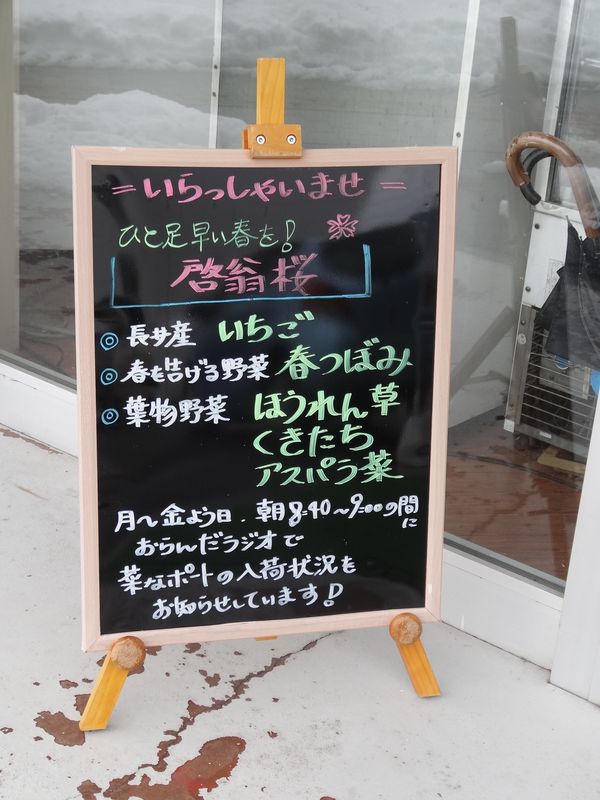 =いらっしゃいませ=
ひと足早い春を!
啓翁桜
◎長井産 いちご
◎春を告げる野菜 春つぼみ
◎葉物野菜 ほうれん草
くきたち
アスパラ菜
月～金よう日、朝8:40～9:00の間に
おらんだラジオで
菜なポートの入荷状況を
お知らせしています!